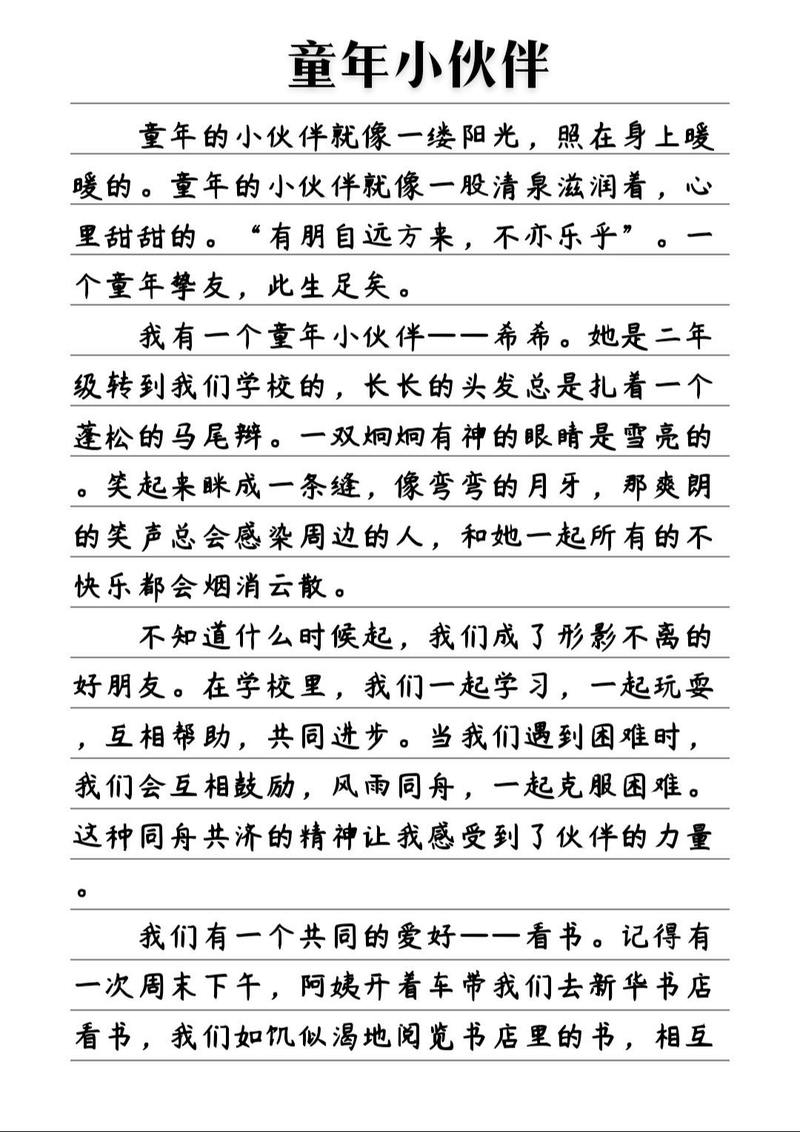 童年小伙伴
童年的小伙伴就像一缕阳光，照在身上暖
暖的。童年的小伙伴就像一股清泉滋润着，心
里甜甜的。“有朋自远方来，不亦乐乎”。一
个童年挚友，此生足矣。
我有一个童年小伙伴——希希。她是二年
级转到我们学校的，长长的头发总是扎着一个
蓬松的马尾辫。一双炯炯有神的眼睛是雪亮的
。笑起来眯成一条缝，像弯弯的月牙，那爽朗
的笑声总会感染周边的人，和她一起所有的不
快乐都会烟消云散。
不知道什么时候起，我们成了形影不离的
好朋友。在学校里，我们一起学习，一起玩耍
，互相帮助，共同进步。当我们遇到困难时，
我们会互相鼓励，风雨同舟，一起克服困难。
这种同舟共济的精神让我感受到了伙伴的力量
。
我们有一个共同的爱好——看书。记得有
一次周末下午，阿姨开着车带我们去新华书店
看书，我们如饥似渴地阅览书店里的书，相互